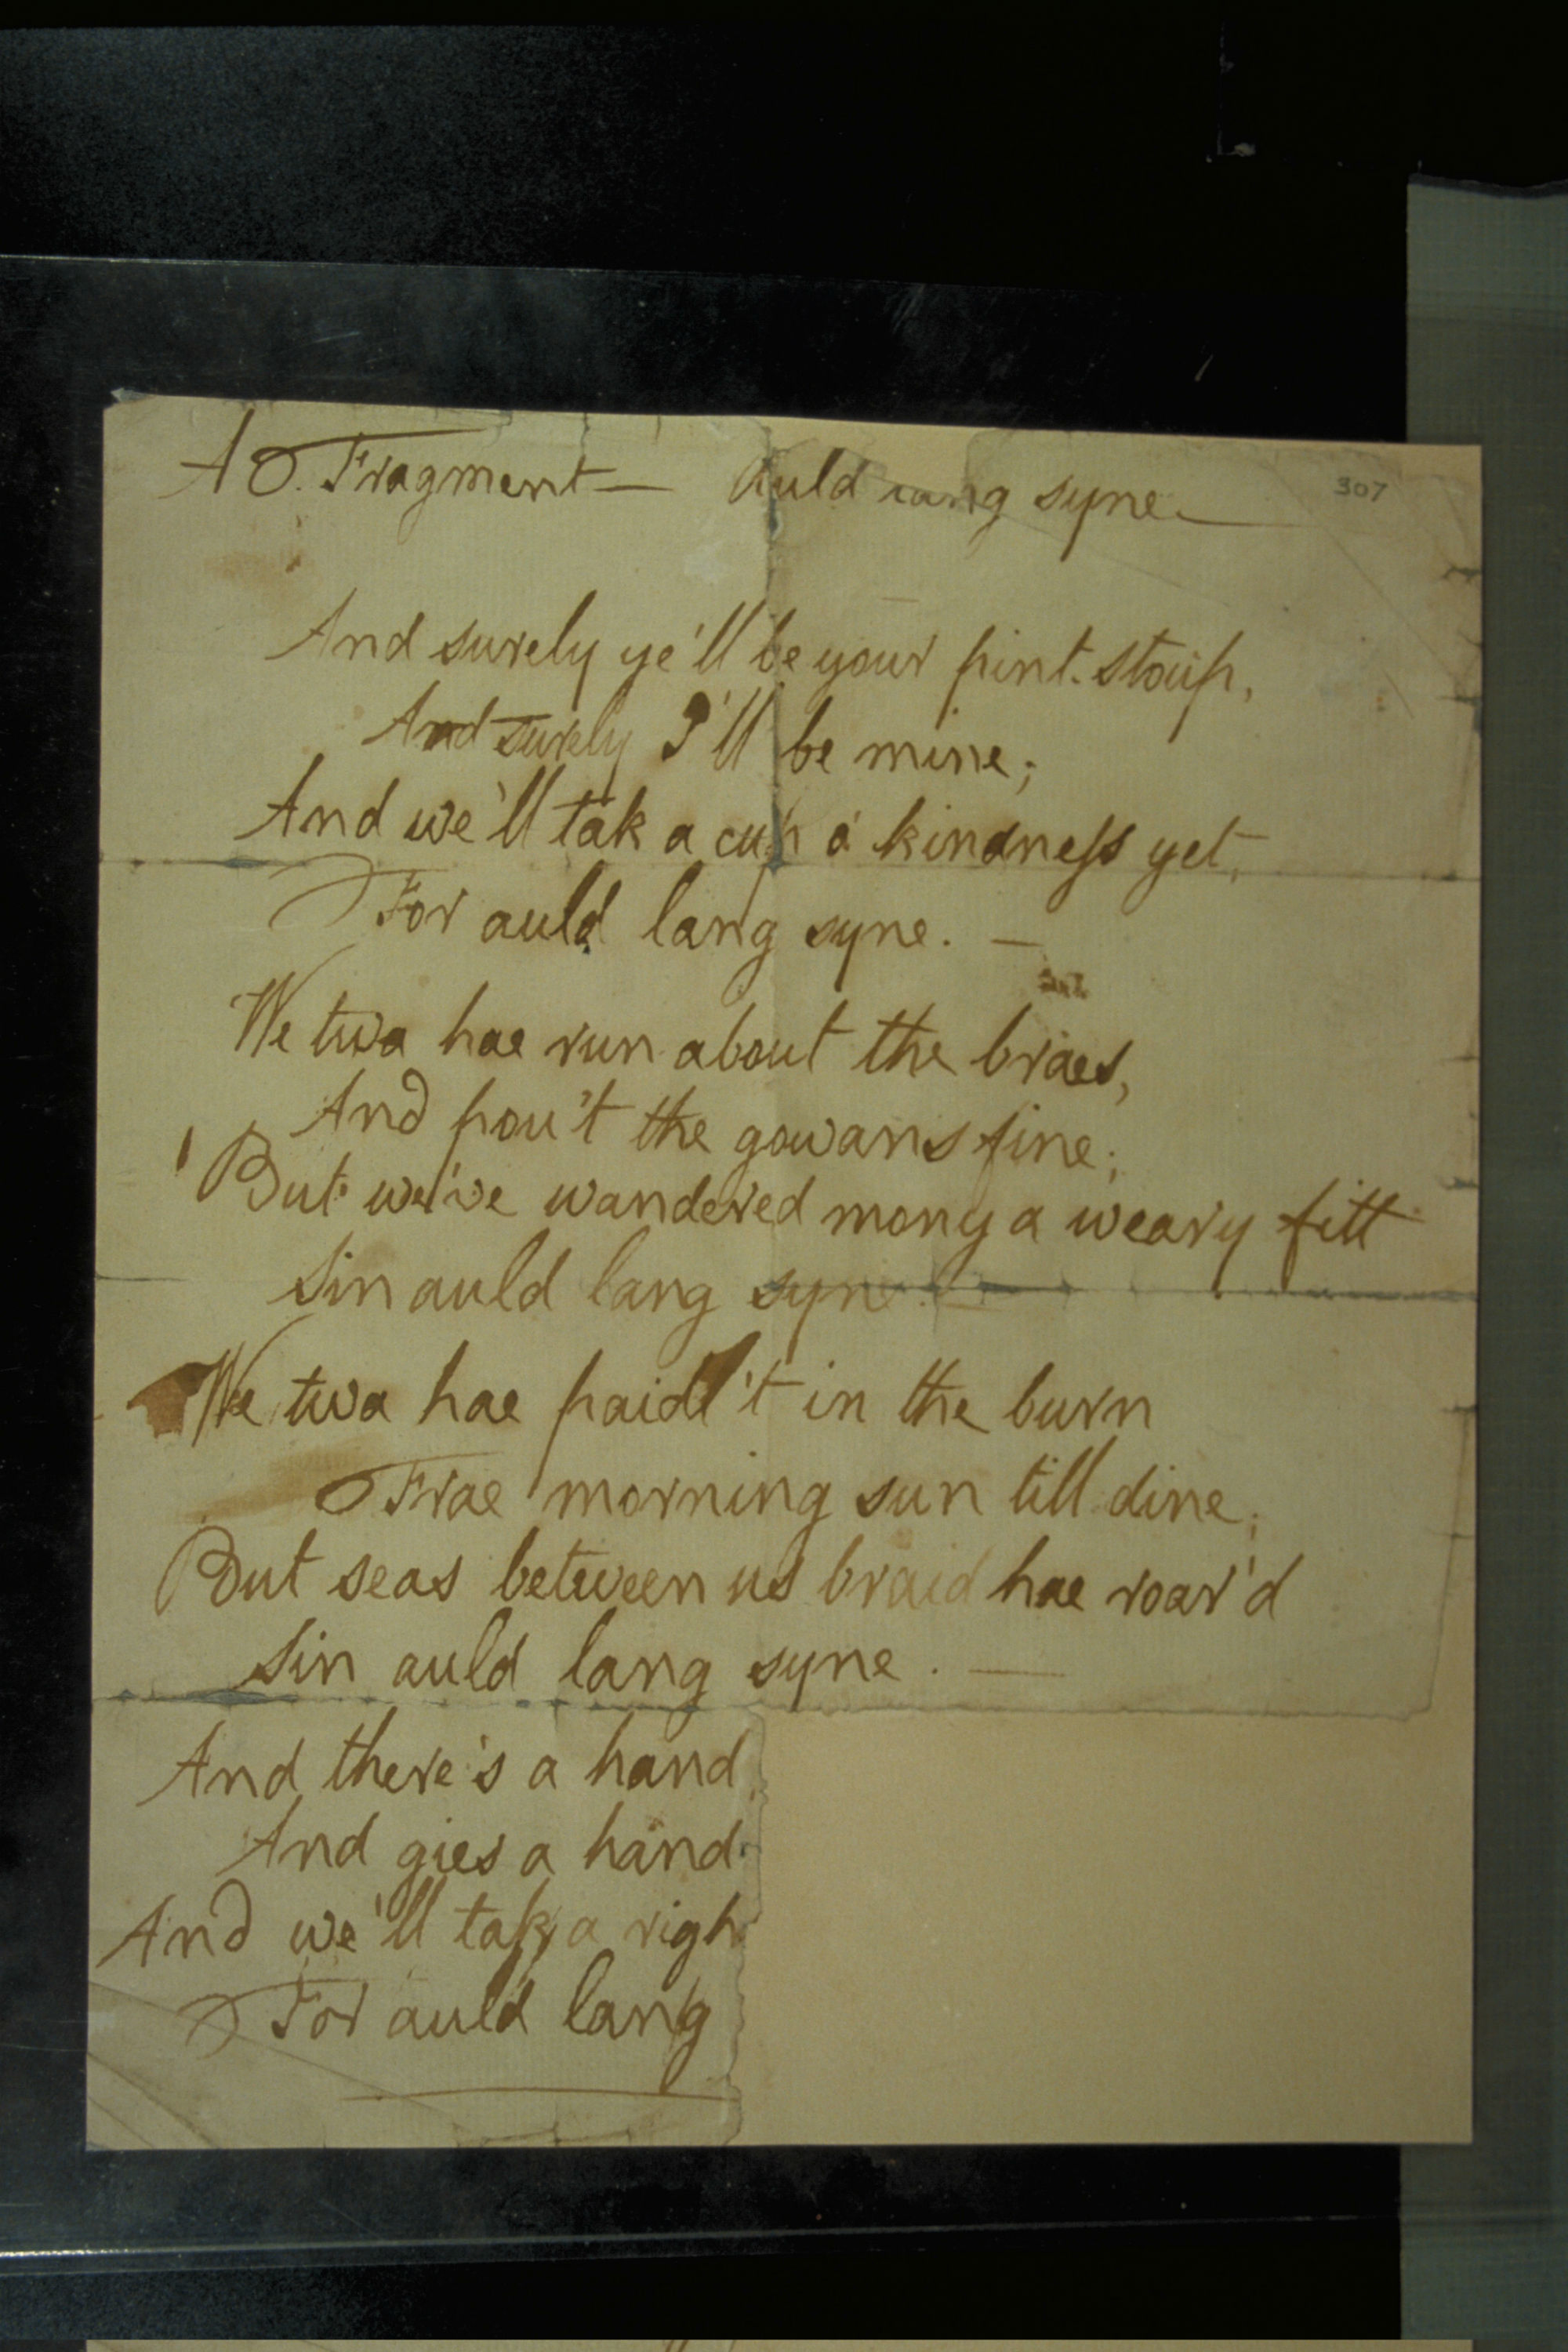 A Fragment — Auld lang syne —
307
And surely ye'll be your pint-stoup,
And surely I'll be mine;
And we'll tak a cup o' kindness yet,
For auld lang syne. —
We twa hae run about the braes,
And pou't the gowans fine;
But we've wandered mony a weary fitt
Sin auld lang syne. —
We twa hae paidl't in the burn
Frae morning sun till dine;
But seas between us braid hae roar'd
Sin auld lang syne. —
And there's a hand
And gies a hand
And we'll tak a righ
For auld lang